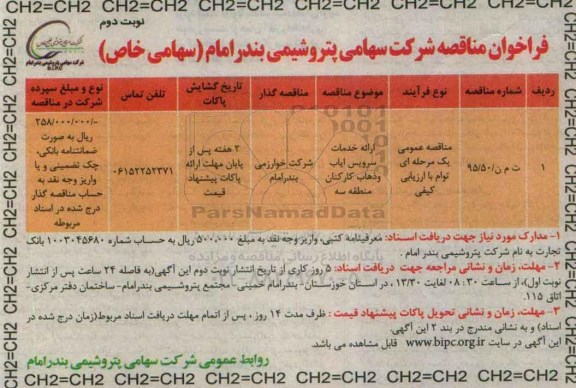 CH2=CH2 CH2=CH2 CH2=CH2 CH2=CH2 CH2=CH2 CH2=CH2 CH2=CH2
نوبت دوم
فراخوان مناقصه شرکت سهامی پتروشیمی بندر امام (سهامی خاص)
شرکت سهامی پتروشیمی بندر امام
B.I.P.C
ردیف شماره مناقصه نوع فرآیند موضوع مناقصه مناقصه گذار تاریخ گشایش پاکات تلفن تماس نوع و مبلغ سپرده شرکت در مناقصه
۱ ت م ن/۹۵/۵۰ مناقصه عمومی یک مرحله ای توام با ارزیابی کیفی ارائه خدمات سرویس ایاب وذهاب کارکنان منطقه سه شرکت خوارزمی بندرامام ۳ هفته پس از پایان مهلت ارائه پاکات پیشنهاد قیمت ۰۶۱۵۲۲۵۲۳۷۱ ۲۵۸/۰۰۰/۰۰۰/- ریال به صورت ضمانتنامه بانکی، چک تضمینی و یا واریز وجه نقد به حساب مناقصه گذار درج شده در اسناد مربوطه
ParsNamadData
پایگاه اطلاع رسانی مناقصه و مزایده
۱- مدارک مورد نیاز جهت دریافت اسـناد: معرفینامه کتبی، واریز وجه نقد به مبلغ ۵۰۰,۰۰۰ ریال به حساب شماره ۱۰۰۳۰۴۵۶۸۰ بانک
تجارت به نام شرکت پتروشیمی بندر امام .
۲- مهلت، زمان و نشانی مراجعه جهت دریافت اسناد: ۵ روز کاری از تاریخ انتشار نوبت دوم این آگهی(به فاصله ۲۴ ساعت پس از انتشار
نوبت اول)، از ساعت ۰۸:۳۰ لغایت ۱۳/۳۰، در استان خوزستان- بندرامام خمینی- مجتمع پتروشیمی بندرامام- ساختمان دفتر مرکزی-
اتاق ۱۱۵.
۳- مهلت، زمان و نشانی تحویل پاکات پیشنهاد قیمت : ظرف مدت ۱۴ روز ، پس از اتمام مهلت دریافت اسناد مربوط(زمان درج شده در
اسناد) و به نشانی مندرج در بند ۲ این آگهی.
این آگهی در سایت www.bipc.org.ir قابل مشاهده می باشد.
روابط عمومی شرکت سهامی پتروشیمی بندرامام
CH2=CH2 CH2=CH2 CH2=CH2 CH2=CH2 CH2=CH2 CH2=CH2 CH2=CH2